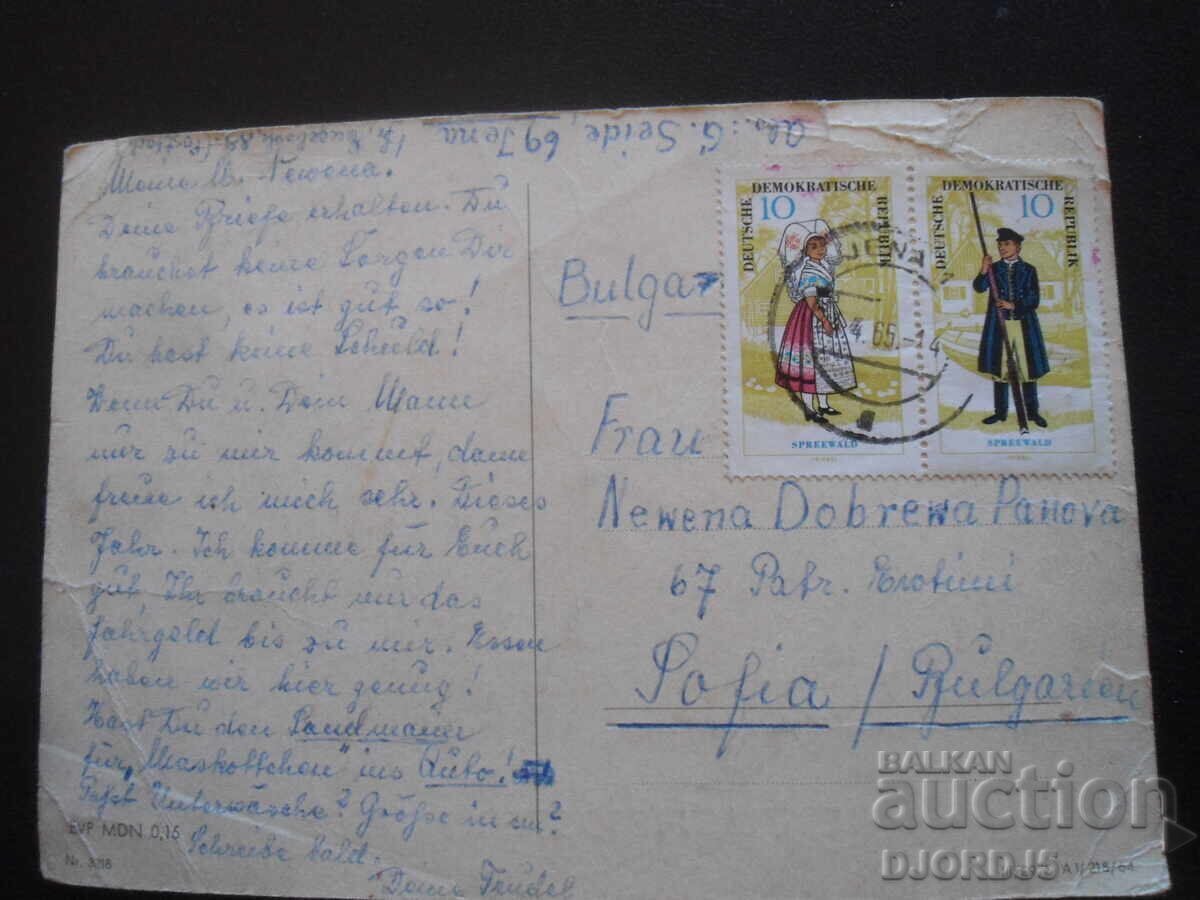 Abs.: G. Seide, 69 Jena
Meine l. Newena.
Deine Briefe erhalten. Du
brauchst keine Sorgen Dir
machen, es ist gut so!
Du hast keine Schuld!
Wenn Du u. Dein Mann
nur zu mir kommt, dann
freue ich mich sehr. Dieses
Jahr. Ich komme für Euch
gut, Ihr braucht nur das
Fahrgeld bis zu mir. Essen
haben wir hier genug!
Hast Du den Sandmann
für „Maskottchen" ins Auto!
Paßt Unterwäsche? Größe in cm?
Schreibe bald.
Deine Trudel
EVP MDN 0,15
Nr. 3218
DEUTSCHE DEMOKRATISCHE REPUBLIK
10
SPREEWALD
DEUTSCHE DEMOKRATISCHE REPUBLIK
10
SPREEWALD
JENA
4.65.-14
a
Bulgar
Frau
Newena Dobrewa Panova
67 Patr. Evotimi
Sofia / Bulgarien
A 1/218/64
BALKAN
auction
DJORDJ5